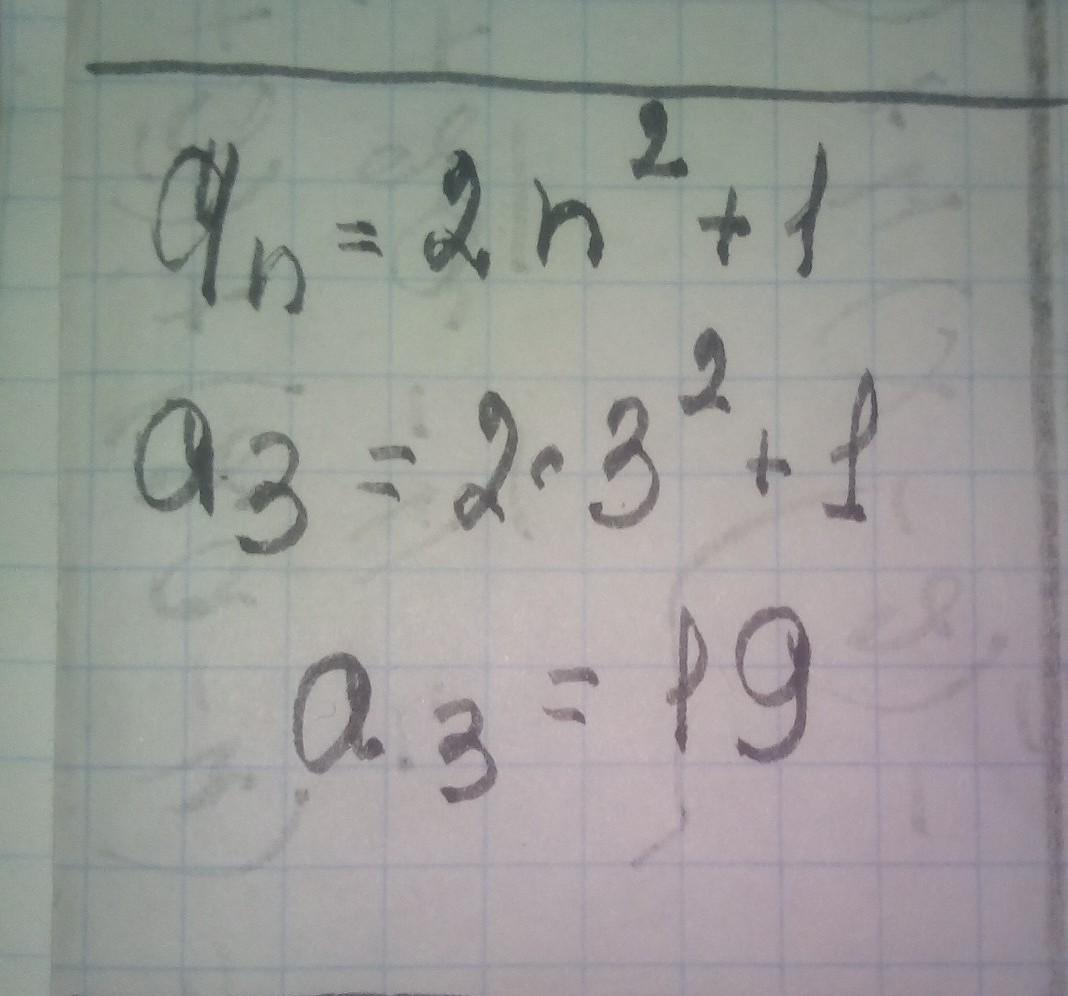 aₙ = 2n² + 1
a₃ = 2·3² + 1
a₃ = 19